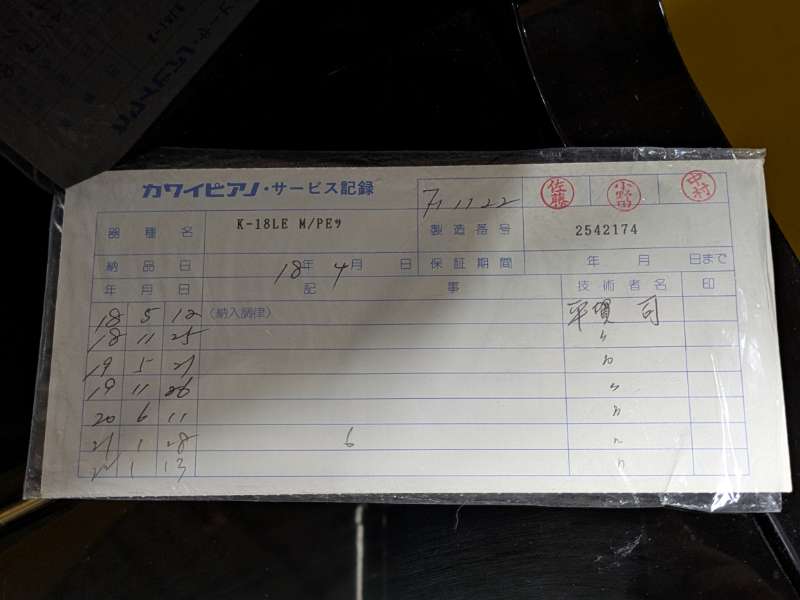 カワイピアノ・サービス記録
佐藤 小野田 中村
器種名 K-18LE M/PEサ 製造番号 2542174
納品日 18年 4月 日 保証期間 年 月 日まで
年 月 日 記 事 技術者名 印
18 5 12 (納入調律) 平賀 司
18 11 25 〃
19 5 21 〃
19 11 26 〃
20 6 11 〃
21 1 28 6 〃
22 1 13 〃